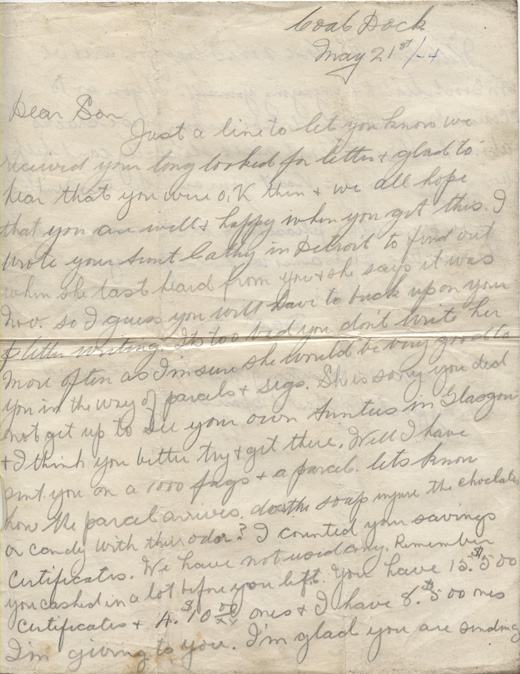 Coal Dock
May 21st/44
Dear Son
Just a line to let you know we
received your long looked for letter & glad to
hear that you were O.K then & we all hope
that you are well & happy when you get this. I
wrote your Aunt Cathy in Detroit to find out
when she last heard from you & she says it was
Nov. so I guess you will have to buck up on your
letter writing its too bad you don't write her
more often as I'm sure she would be very good to
you in the way of parcels & sigs. She is sorry you did
not get up to see your own Aunties in Glasgow
& I think you better try & get there. Well I have
sent you on a 1000 fags & a parcel. lets know
how the parcel arrives. does the soap injure the chocolate
or candy with their odor? I counted your savings
Certificates. We have not used any. Remember
you cashed in a lot before you left. You have 15. $5.00
Certificates & 4. $10.00 ones & I have 8. $5.00 ones
I'm giving to you. I'm glad you are sending